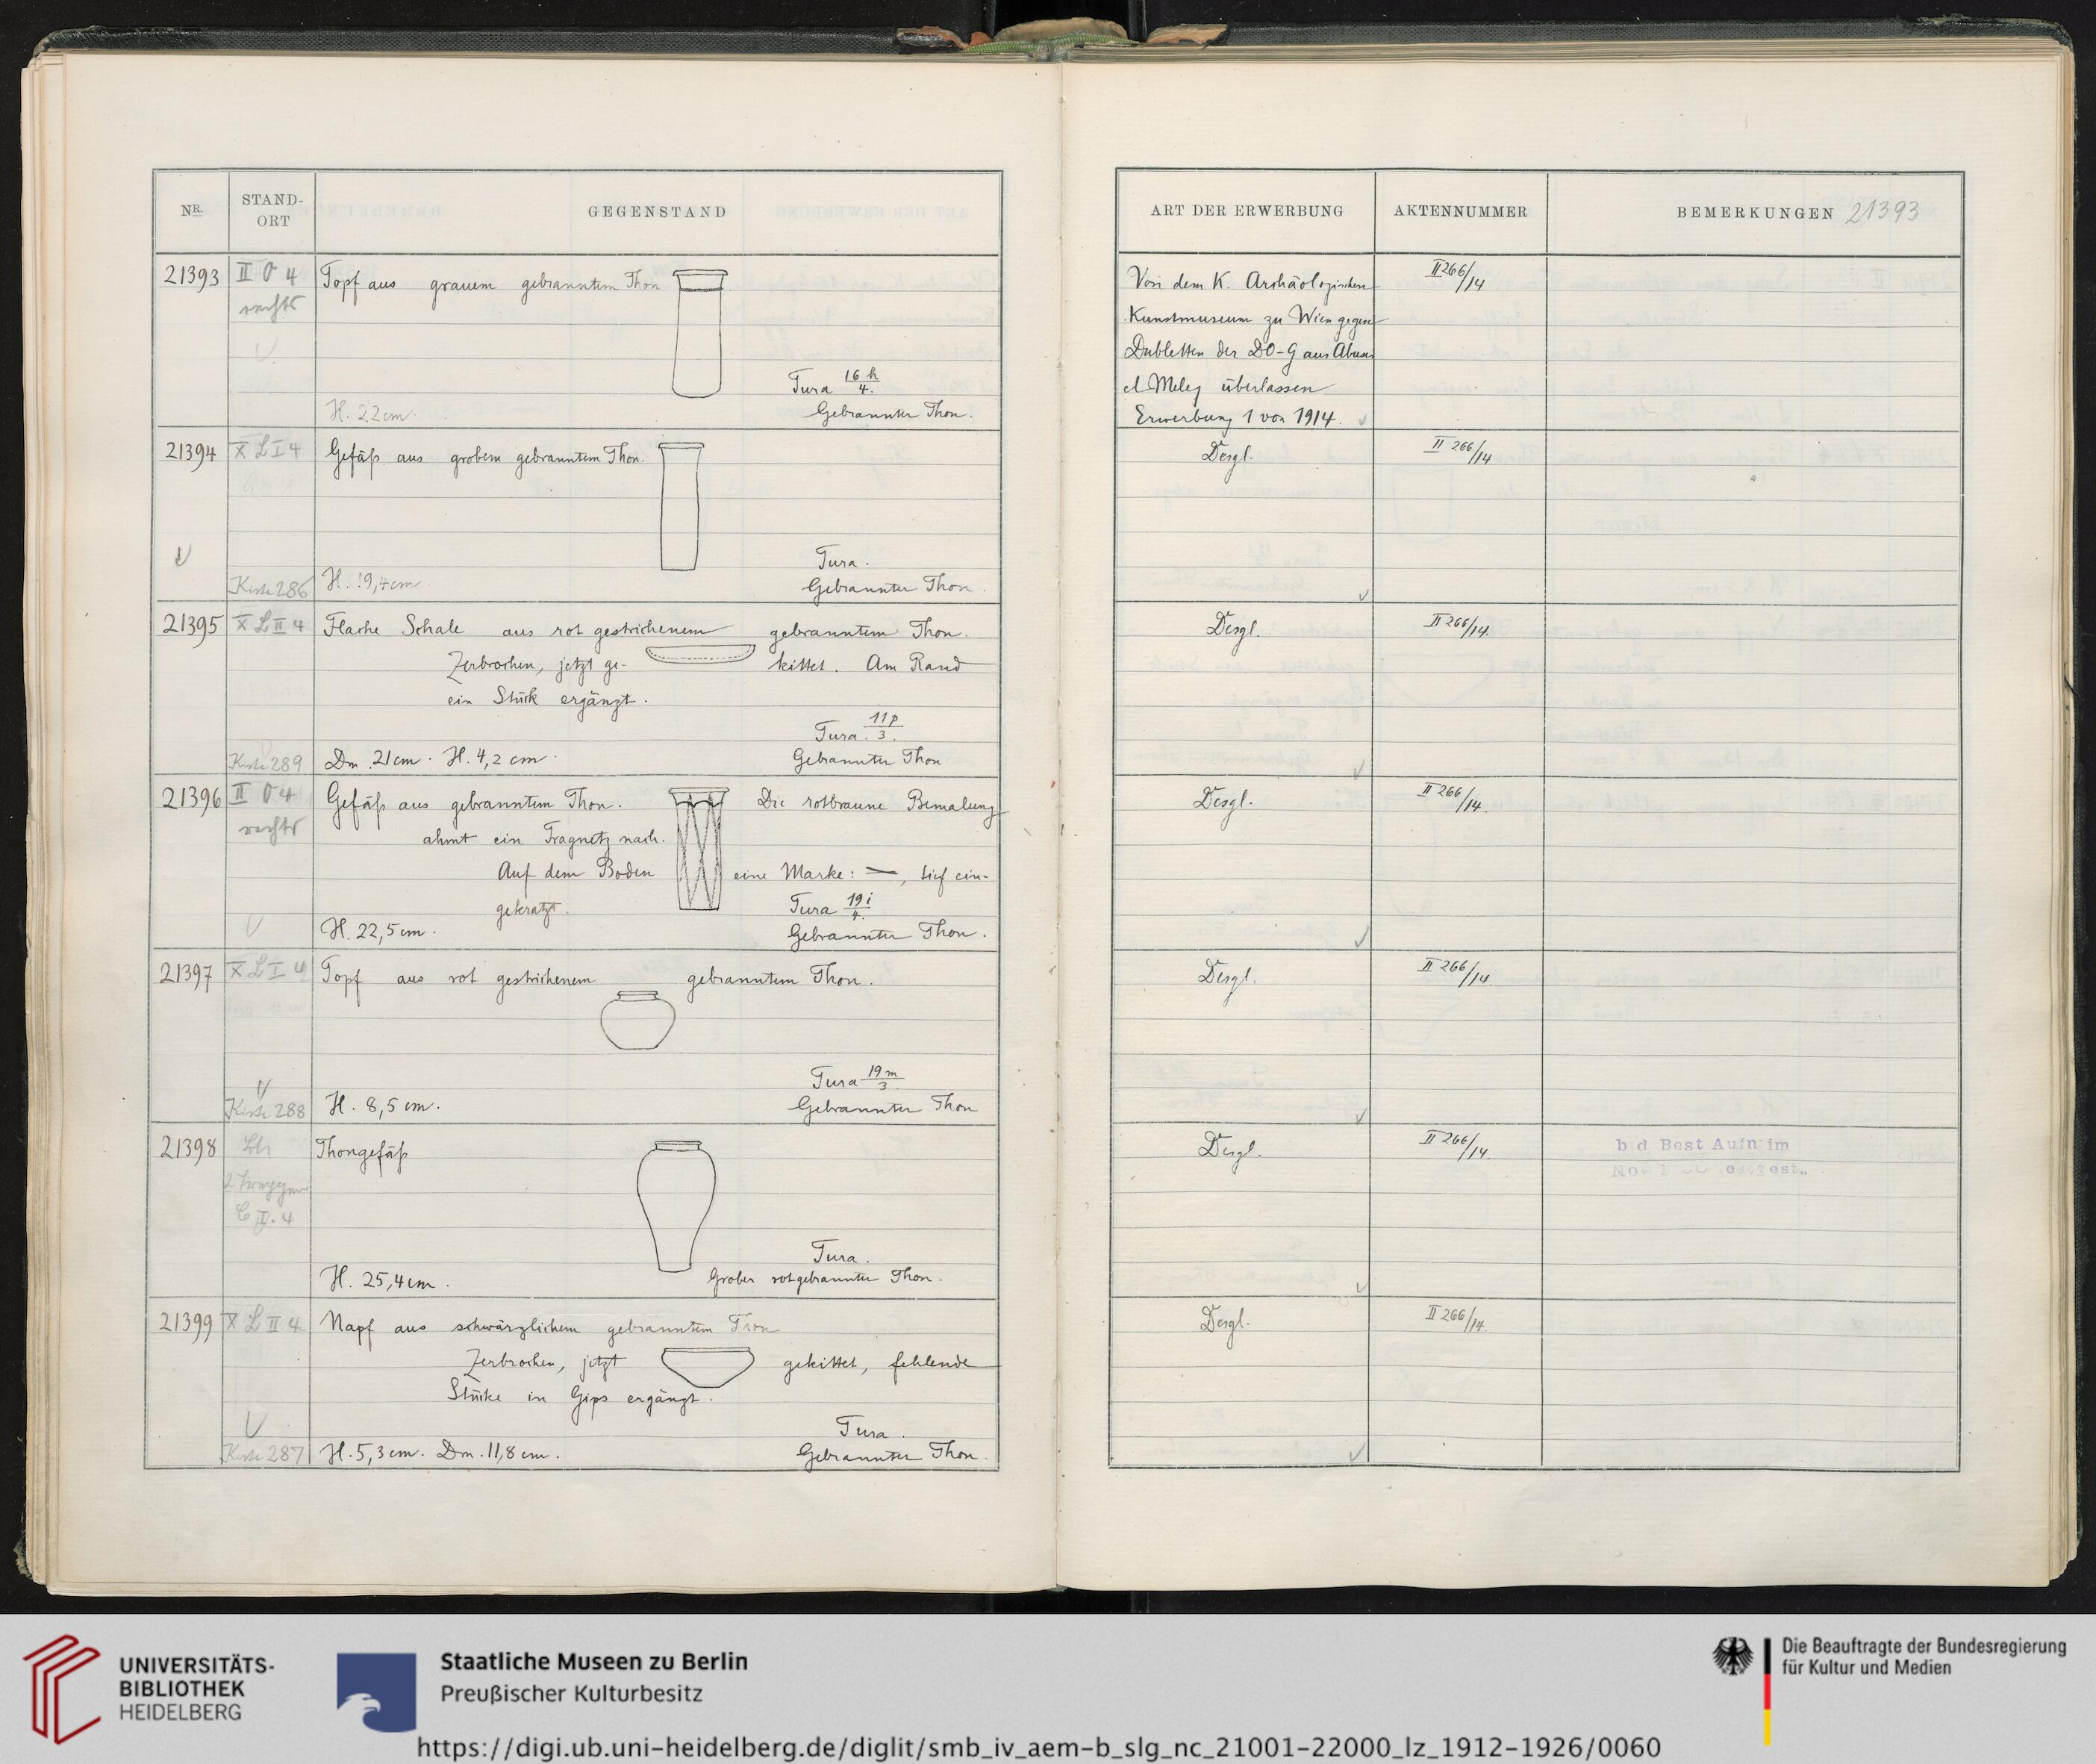 NR.
STAND-
ORT
GEGENSTAND
21393
II O 4
rechts
Topf aus grauem gebranntem Thon
Tura 16 h/4.
H. 22 cm.
Gebrannter Thon.
21394
X L I 4
Gefäß aus grobem gebranntem Thon.
Tura.
Kiste 286
H. 19,4 cm.
Gebrannter Thon.
21395
X L II 4
Flache Schale aus rot gestrichenem gebranntem Thon.
Zerbrochen, jetzt ge- kittet. Am Rand
ein Stück ergänzt.
Tura. 11 p/3.
Kiste 289
Dm. 21 cm. H. 4,2 cm.
Gebrannter Thon
21396
II O 4
rechts
Gefäß aus gebranntem Thon. Die rotbraune Bemalung
ahmt ein Tragnetz nach.
Auf dem Boden eine Marke: —, tief ein-
gekratzt.
Tura 19 i/4.
H. 22,5 cm.
Gebrannter Thon.
21397
X L I 4
Topf aus rot gestrichenem gebranntem Thon.
Tura 19 m/3.
Kiste 288
H. 8,5 cm.
Gebrannter Thon
21398
Thongefäß
C II. 4
Tura.
H. 25,4 cm.
Grober rotgebrannter Thon.
21399
X L II 4
Napf aus schwärzlichem gebranntem Thon
Zerbrochen, jetzt gekittet, fehlende
Stücke in Gips ergänzt.
Tura.
Kiste 287
H. 5,3 cm. Dm. 11,8 cm.
Gebrannter Thon.
ART DER ERWERBUNG
AKTENNUMMER
BEMERKUNGEN 21393
Von dem K. Archäologischen
II 266/14
Kunstmuseum zu Wien gegen
Dubletten der DO-G aus Abusir
el Meleq überlassen
Erwerbung 1 von 1914.
Desgl.
II 266/14
Desgl.
II 266/14.
Desgl.
II 266/14.
Desgl.
II 266/14
Desgl.
II 266/14.
b d Best Aufn im
Desgl.
II 266/14.
UNIVERSITÄTS-
BIBLIOTHEK
HEIDELBERG
Staatliche Museen zu Berlin
Preußischer Kulturbesitz
Die Beauftragte der Bundesregierung
für Kultur und Medien
https://digi.ub.uni-heidelberg.de/diglit/smb_iv_aem-b_slg_nc_21001-22000_lz_1912-1926/0060